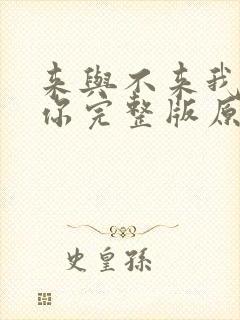 来與不来我
你完整版原
史皇孫